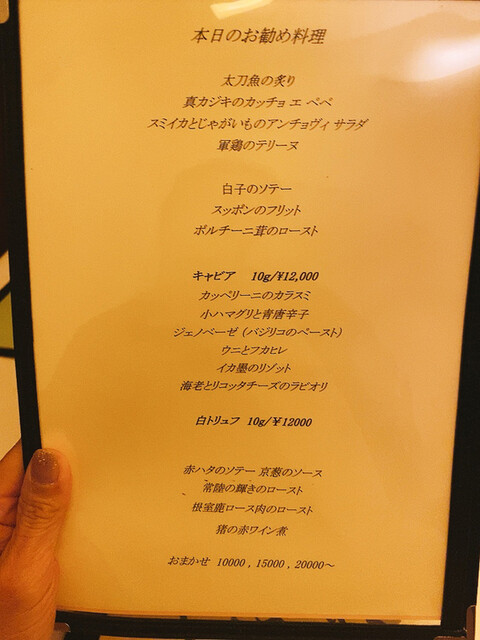 本日のお勧め料理
太刀魚の炙り
真カジキのカッチョ エ ペペ
スミイカとじゃがいものアンチョヴィ サラダ
軍鶏のテリーヌ
白子のソテー
スッポンのフリット
ポルチーニ茸のロースト
キャビア 10g/¥12,000
カッペリーニのカラスミ
小ハマグリと青唐辛子
ジェノベーゼ（バジリコのペースト）
ウニとフカヒレ
イカ墨のリゾット
海老とリコッタチーズのラビオリ
白トリュフ 10g/¥12000
赤ハタのソテー 京葱のソース
常陸の輝きのロースト
根室鹿ロース肉のロースト
猪の赤ワイン煮
おまかせ 10000 , 15000 , 20000～